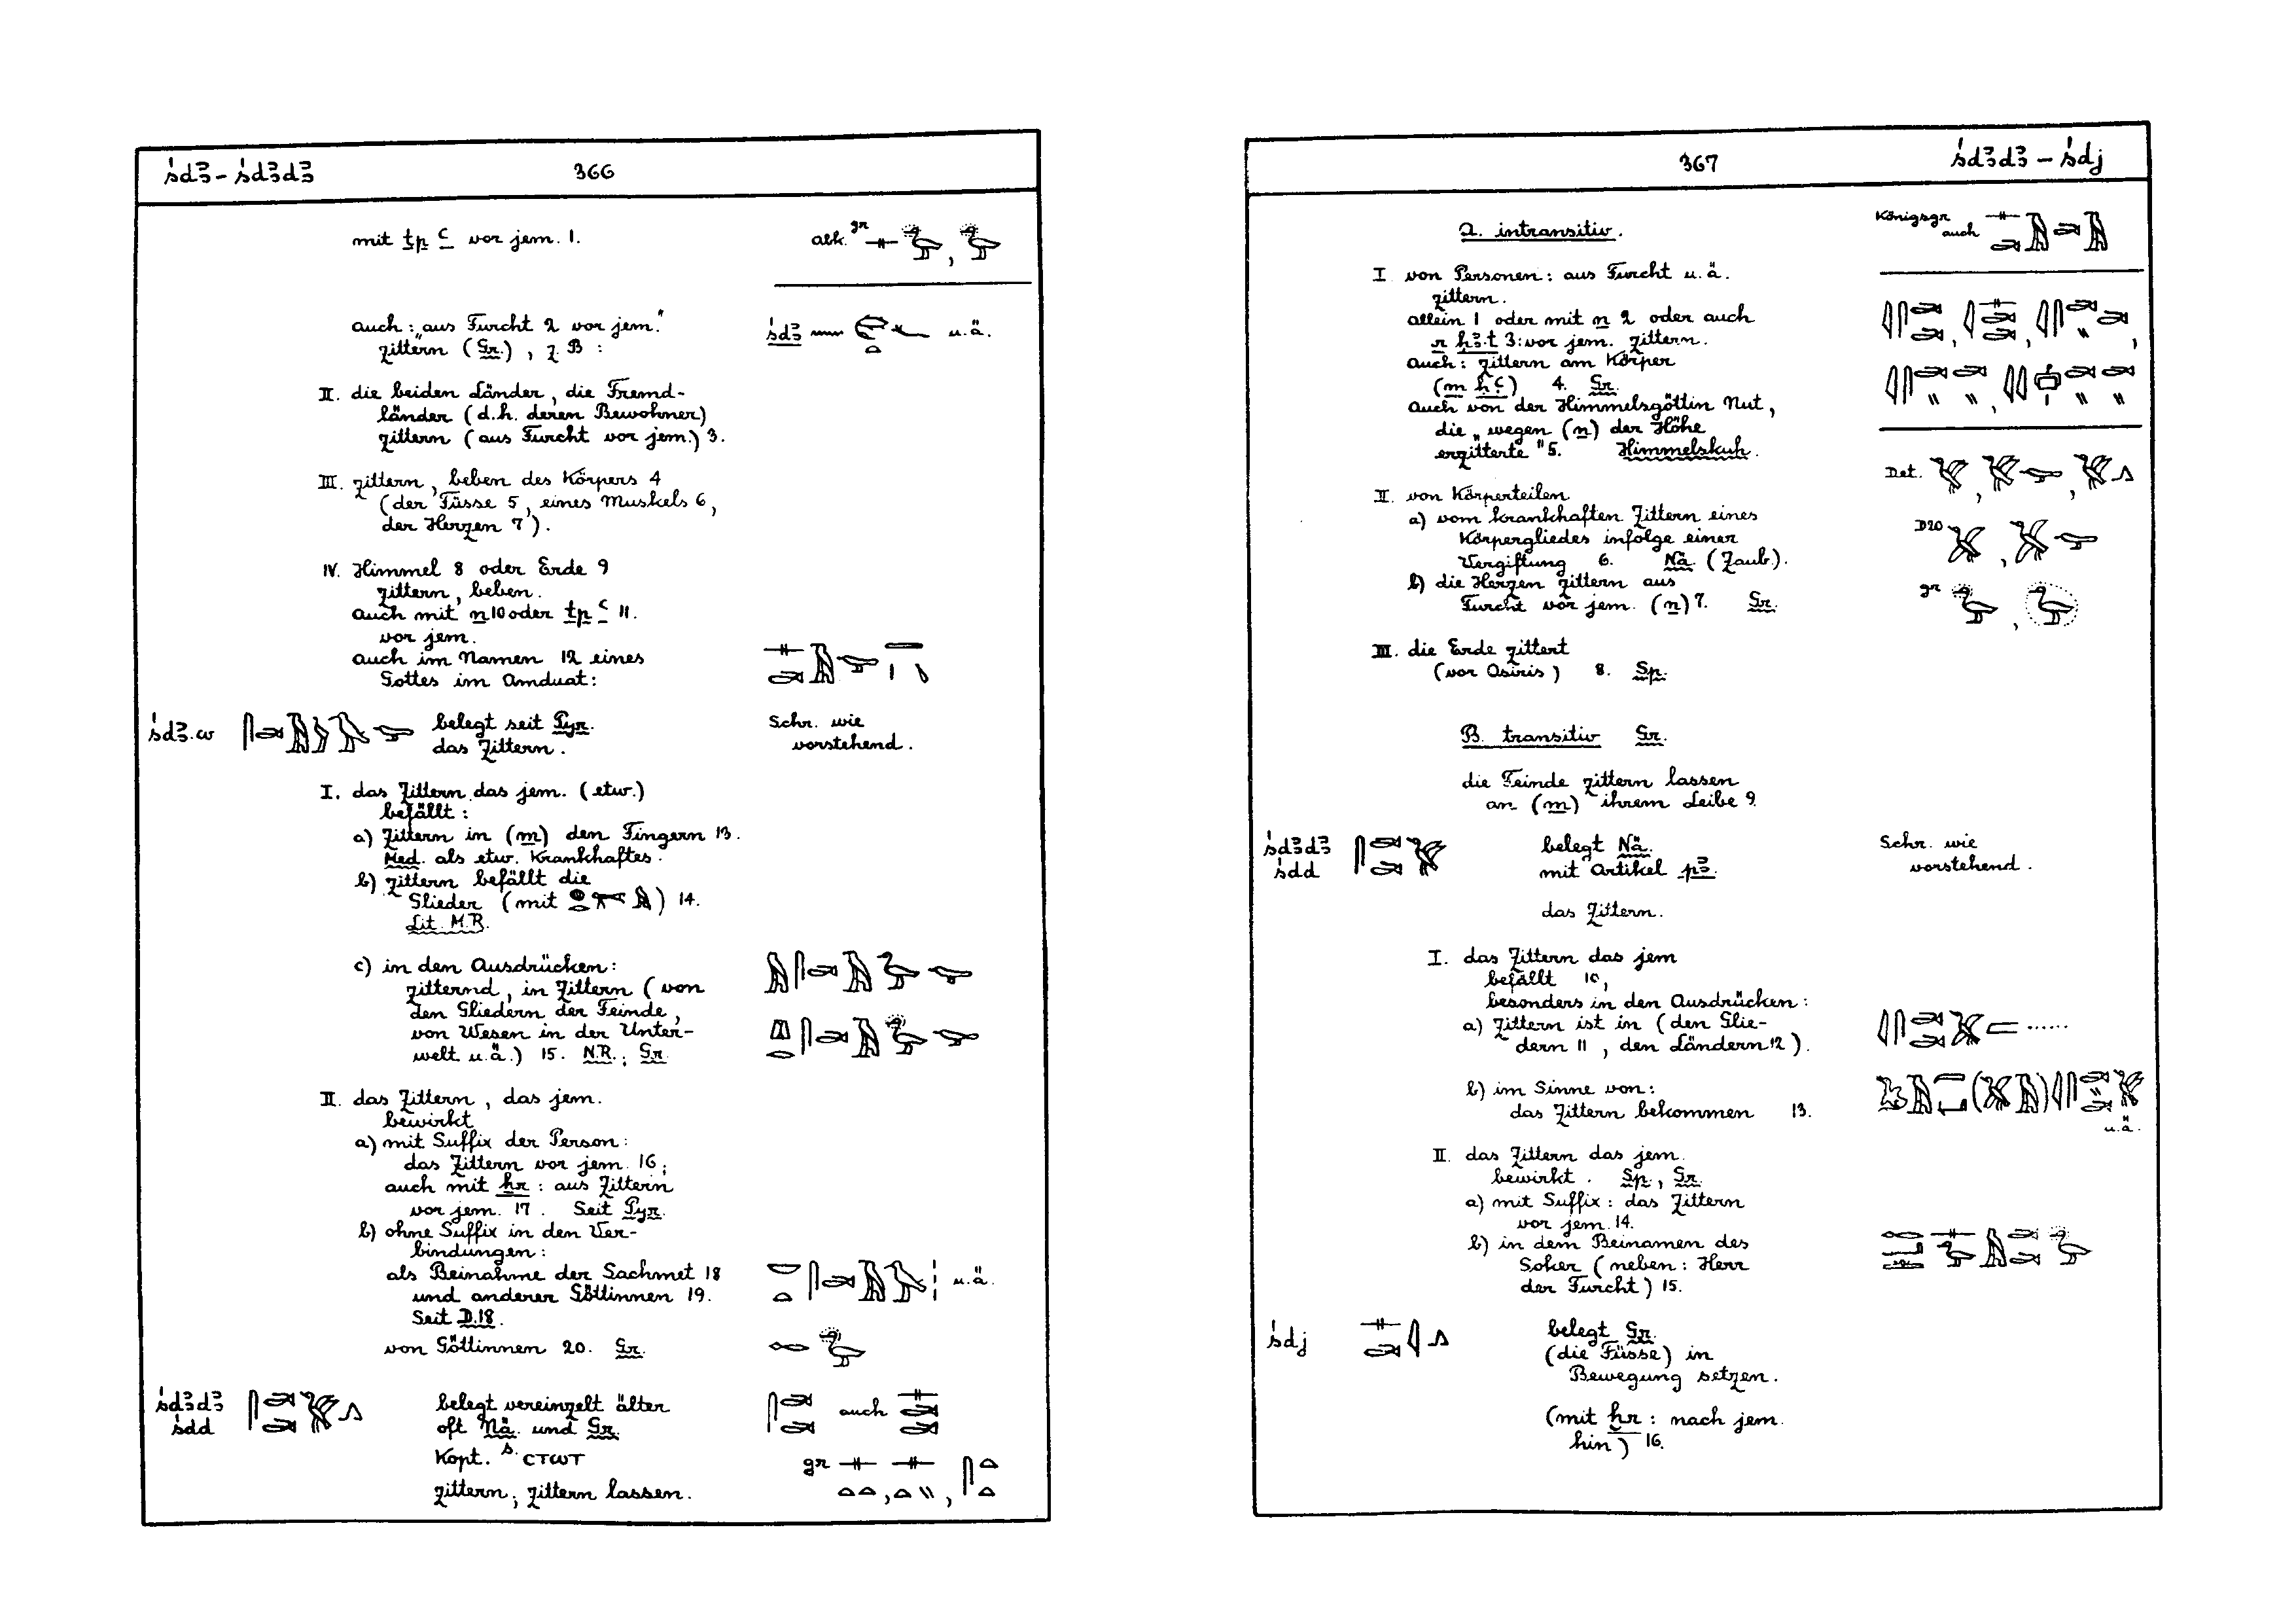 śdꜣ – śdꜣdꜣ 366
mit tp ꜥ vor jem. 1.
abk. gr
auch: „aus Furcht 2 vor jem."
zittern (Gr.), z. B:
śdꜣ u.ä.
II. die beiden Länder, die Fremd-
länder (d.h. deren Bewohner)
zittern (aus Furcht vor jem.) 3.
III. zittern, beben des Körpers 4
(der Füsse 5, eines Muskels 6,
der Herzen 7).
IV. Himmel 8 oder Erde 9
zittern, beben.
auch mit n 10 oder tp ꜥ 11.
vor jem.
auch im Namen 12 eines
Gottes im Amduat:
śdꜣ.w belegt seit Pyr. Schr. wie
das Zittern. vorstehend.
I. das Zittern das jem. (etw.)
befällt:
a) Zittern in (m) den Fingern 13.
Med. als etw. Krankhaftes.
b) Zittern befällt die
Glieder (mit ) 14.
Lit. M.R.
c) in den Ausdrücken:
zitternd, in Zittern (von
den Gliedern der Feinde,
von Wesen in der Unter-
welt u.ä.) 15. N.R.; Gr.
II. das Zittern, das jem.
bewirkt
a) mit Suffix der Person:
das Zittern vor jem. 16;
auch mit ẖr : aus Zittern
vor jem. 17. Seit Pyr.
b) ohne Suffix in den Ver-
bindungen:
als Beiname der Sachmet 18 u.ä.
und anderer Göttinnen 19.
Seit D.18.
von Göttinnen 20. Gr.
śdꜣdꜣ belegt vereinzelt älter auch
śdd oft Nä. und Gr.
Kopt. S. ⲥⲧⲱⲧ gr
zittern; zittern lassen.
367 śdꜣdꜣ – śdj
A. intransitiv.
Königsgr
auch
I von Personen: aus Furcht u.ä.
zittern.
allein 1 oder mit n 2 oder auch
r ḥꜣ.t 3: vor jem. zittern.
auch: zittern am Körper
(m ḥꜥ) 4. Gr.
Auch von der Himmelsgöttin Nut,
die „wegen (n) der Höhe
erzitterte" 5. Himmelskuh.
Det.
II. von Körperteilen
a) vom krankhaften Zittern eines
Körpergliedes infolge einer
Vergiftung 6. Nä. (Zaub.).
D20
b) die Herzen zittern aus
Furcht vor jem. (n) 7. Gr.
gr
III. die Erde zittert
(vor Osiris) 8. Sp.
B. transitiv Gr.
die Feinde zittern lassen
an (m) ihrem Leibe 9.
śdꜣdꜣ belegt Nä. Schr. wie
śdd mit Artikel pꜣ. vorstehend.
das Zittern.
I. das Zittern das jem
befällt 10,
besonders in den Ausdrücken:
a) Zittern ist in (den Glie-
dern 11, den Ländern 12).
b) im Sinne von:
das Zittern bekommen 13.
u.ä.
II. das Zittern das jem.
bewirkt. Sp., Gr.
a) mit Suffix: das Zittern
vor jem. 14.
b) in dem Beinamen des
Soker (neben: Herr
der Furcht) 15.
śdj belegt Gr.
(die Füsse) in
Bewegung setzen.
(mit ḫr : nach jem.
hin) 16.